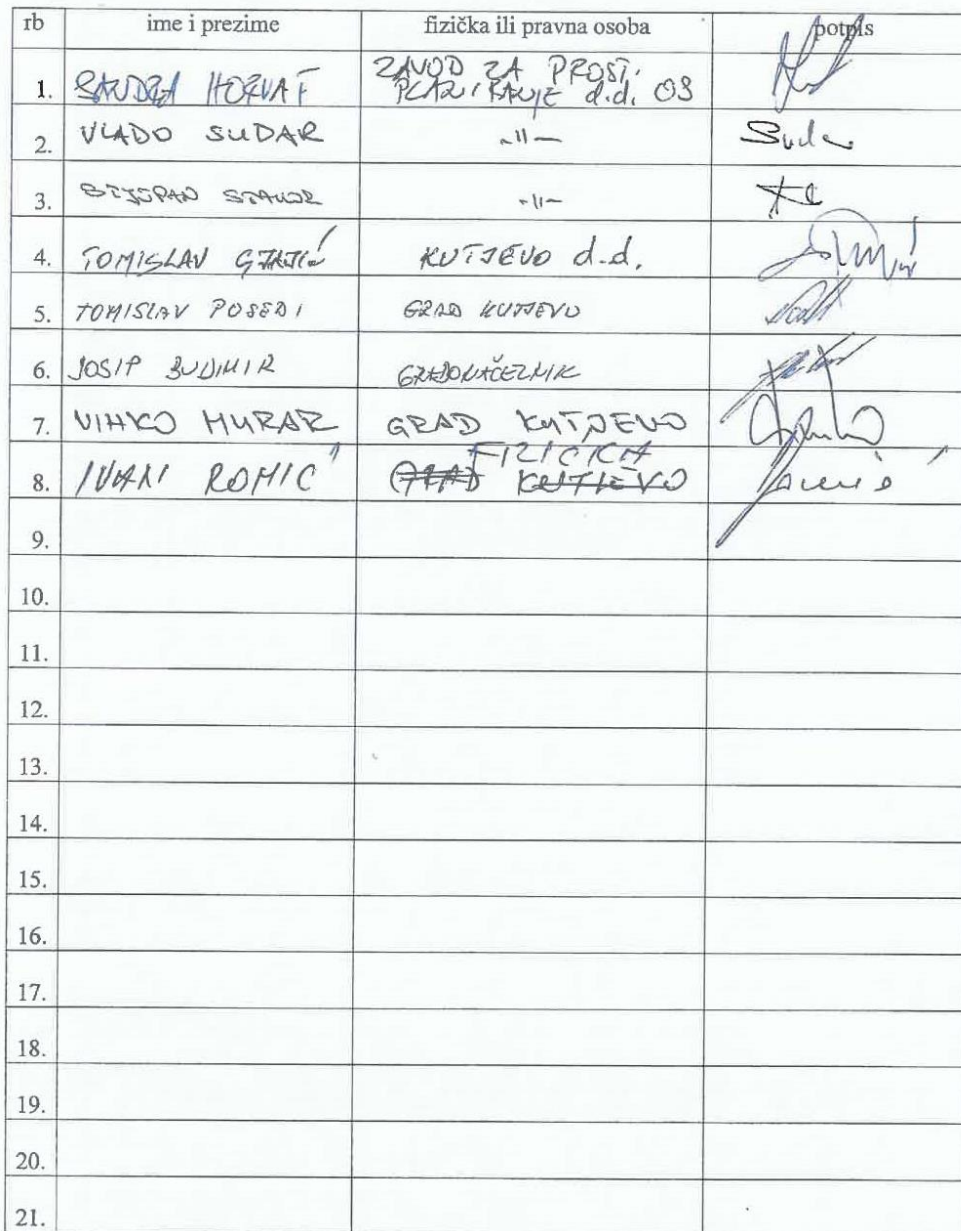 rb ime i prezime fizička ili pravna osoba potpis
1. SANDRA HORVAT ZAVOD ZA PROST. PLANIRANJE d.d. OS
2. VLADO SUDAR -"- Sudar
3. STJEPAN -"-
4. TOMISLAV KUTJEVO d.d.
5. TOMISLAV POSEDI GRAD KUTJEVO
6. JOSIP BUDIMIR GRADONAČELNIK
7. VINKO MURAR GRAD KUTJEVO
8. IVAN ROMIĆ FIZIČKA GRAD KUTJEVO
9.
10.
11.
12.
13.
14.
15.
16.
17.
18.
19.
20.
21.